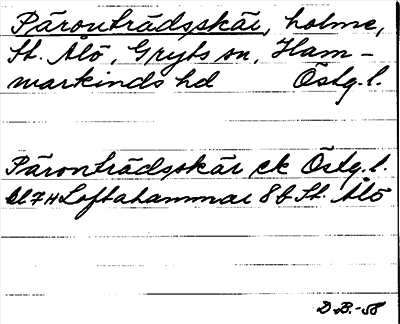 Päronträdsskär, holme,
St. Ålö, Gryts sn, Ham-
markinds hd Östg. l.
Päronträdsskär ek Östg. l.
bl 7H Loftahammar 8b St. Ålö
D.B.-58